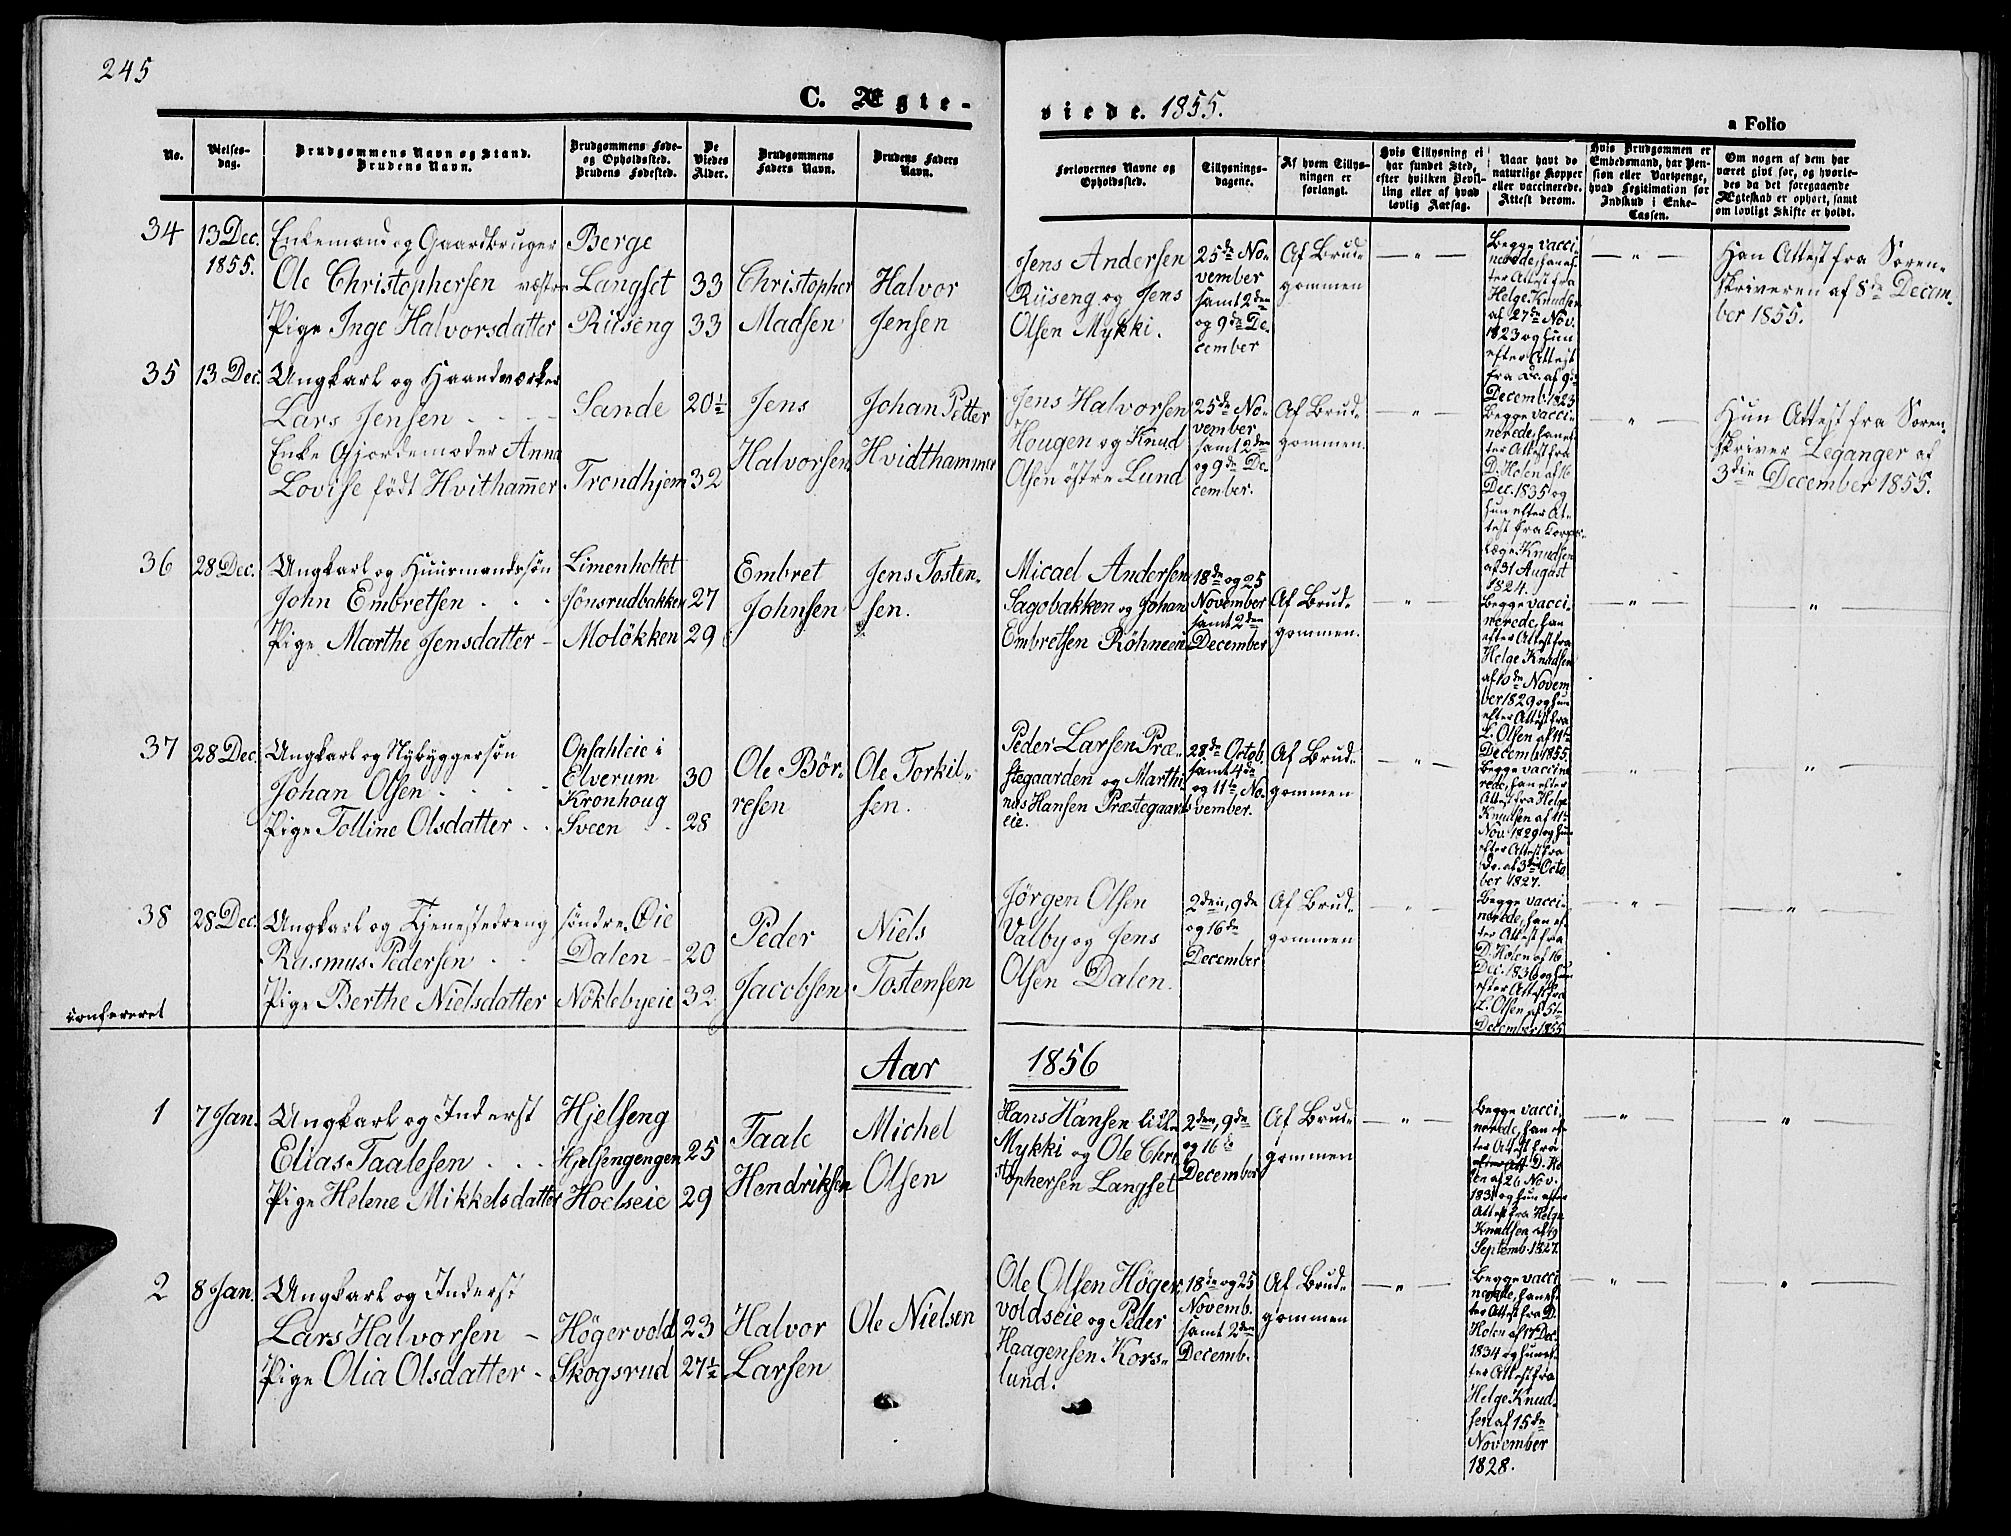 245
C. Ægte-
viede. 1855.
a Folio
No.
Vielses-
dag.
Brudgommens Navn og Stand.
Brudens Navn.
Brudgommens Føde-
og Opholdssted.
Brudens Fødested.
De
Viedes
Alder.
Brudgommens
Faders Navn.
Brudens Faders
Navn.
Forlovernes Navne og
Opholdssted.
Tillysnings-
dagene.
Af hvem Tillys-
ningen er
forlangt.
Hvis Tillysning ei
har fundet Sted,
efter hvilken Bevil-
ling eller af hvad
lovlig Aarsag.
Naar havt de
naturlige Kopper
eller vaccinerede.
Attest derom.
Hvis Brudgommen er
Embedsmand, har Pen-
sion eller Vartpenge,
hvad Legitimation for
Indskud i Enke-
Cassen.
Om nogen af dem har
været givt før, og hvorle-
des da det foregaaende
Ægteskab er ophørt, samt
om lovligt Skifte er holdt.
34
13 Dec.
1855.
Enkemand og Gaardbruger
Ole Christophersen vestre
Pige Inge Halvorsdatter
Berge
Langset
Riiseng
33
33
Christopher
Madsen
Halvor
Jensen
Jens Andersen
Riiseng og Jens
Olsen Mykki.
25de No-
vember
samt 2den
og 9de De-
cember
Af Brud-
gommen
— " —
Begge vacci-
nerede, han ef-
ter Attest fra
Helge Knudsen
af 27de Nov.
1823 og hun
efter Attest
fra do. af 9de
Decemb. 1823
— " —
Han Attest fra Soren-
skriveren af 8de Decem-
ber 1855.
35
13 Dec.
Ungkarl og Haandværker
Lars Jensen
Enke Gjordemoder Anna
Lovise født Hvithamer
Sande
Trondhjem
20½
32
Jens
Halvorsen
Johan Petter
Hvidthammer
Jens Halvorsen
Hougen og Knud
Olsen östre Lund
25de No-
vember
samt 2den
og 9de De-
cember.
Af Brud-
gommen.
— " —
Begge vacci-
nerede, han ef-
ter Attest fra
D. Holen af 16
Dec. 1835 og
hun efter At-
test fra Corps-
læge Knudsen
af 31 August
1824.
"
Hun Attest fra Soren-
skriver Leganger af
3die December 1855.
36
28 Dec.
Ungkarl og Huusmandssøn
John Embretsen
Pige Marthe Jensdatter
Limenholtet
Jönsrudbakken
Molökken
27
29
Embret
Johnsen
Jens Tosten-
sen.
Micael Andersen
Sagobakken og Johan
Embretsen Röhneeie
18de og 25
November
samt 2den
December
Af Brud-
gommen.
— " —
Begge vacci-
nerede, han
efter Attest fra
Helge Knudsen
af 10de Novem
ber 1829 og hun
efter Attest fra
L. Olsen af 11te
Decemb. 1855.
— " —
"
37
28 Dec.
Ungkarl og Nybyggersøn
Johan Olsen
Pige Tolline Olsdatter
Opsahleie i
Elverum
Kronhoug
Sveen
30
28
Ole Bör-
resen
Ole Torkil-
sen.
Peder Larsen Præ-
stegaarden og Marthi-
nus Hansen Præstegaards
eie.
28de Octob.
samt 4de
og 11te No-
vember.
Af Brud-
gommen
— " —
Begge vaccine
rede, han efter
Attest fra Helge
Knudsen af 11te
Nov. 1829 og hun
efter Attest fra
do. af 3die Octo
ber 1827.
"
"
38
28 Dec.
Ungkarl og Tjenestedreng
Rasmus Pedersen
Pige Berthe Nielsdatter
söndre Öie
Dalen
Nöklebyeie
20
32
Peder
Jacobsen
Niels
Tostensen
Jörgen Olsen
Valby og Jens
Olsen Dalen.
2den, 9de
og 16de
December
Af Brud-
gommen
"
Begge vacci-
nerede, han ef-
ter Attest fra
D. Holen af 16
Dec. 1836 og hun
efter Attest fra
L. Olsen af 5te
December 1855
"
"
confereret
Aar 1856
1
7 Jan.
Ungkarl og Inderst
Elias Taalesen
Pige Helene Mikkelsdatter
Hjelseng
Hjelsengengen
Hoelseie
25
29
Taale
Hendriksen
Michel
Olsen
Hans Hansen lille
Mykki og Ole Chri-
stophersen Langset
2den, 9de
og 16de
December
Af Brud-
gommen
— " —
Begge vacci-
nerede, han ef-
ter Attest fra
D. Ho
len af 26 Nov.
1831 og hun efter
Attest fra Helge
Knudsen af 19
Septemb. 1827.
— " —
"
2
8 Jan.
Ungkarl og Inderst
Lars Halvorsen
Pige Olia Olsdatter
Högervold
Skogsrud
23
27½
Halvor
Larsen
Ole Nielsen
Ole Olsen Höger-
voldseie og Peder
Haagensen Kors-
lund.
18de og 25
Novemb.
samt 2den
Decemb.
Af Brud-
gommen
— " —
Begge vacci
nerede, han ef-
ter Attest fra D.
Holen af 17 Dec.
1834 og hun ef-
ter Attest fra
Helge Knud-
sen af 15de
November
1828.
— " —
"